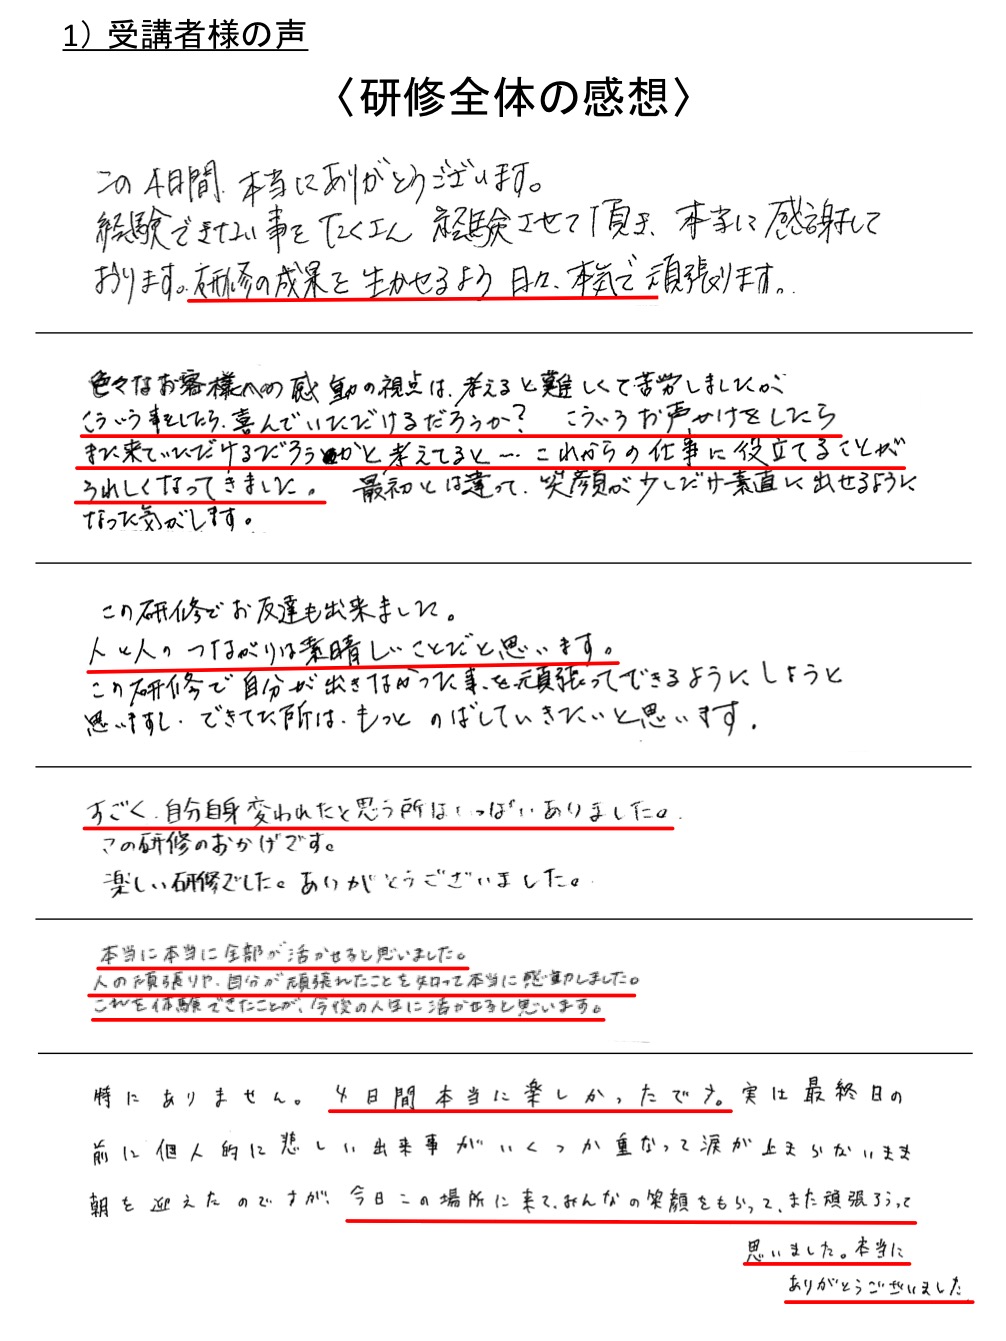 1）受講者様の声
〈研修全体の感想〉
この4日間、本当にありがとうございます。
経験できない事をたくさん 経験させて頂き、本当に感謝して
おります。研修の成果を生かせるよう 日々、本気で頑張ります。
色々なお客様への感動の視点は、考えると難しくて苦労しましたが
こういう事をしたら、喜んでいただけるだろうか？ こういうお声かけをしたら
また来ていただけるだろうかと考えてると… これからの仕事に役立てることが
うれしくなってきました。 最初とは違って、笑顔が少しだけ素直に出せるように
なった気がします。
この研修でお友達も出来ました。
人と人のつながりは素晴しいことだと思います。
この研修で自分が出きなかった事を頑張ってできるようにしようと
思いますし、できてた所は、もっとのばしていきたいと思います。
すごく、自分自身変われたと思う所はいっぱいありました。
この研修のおかげです。
楽しい研修でした。ありがとうございました。
本当に本当に全部が活かせると思いました。
人の頑張りや、自分が頑張れたことを知って本当に感動しました。
これを体験できたことが、今後の人生に活かせると思います。
特にありません。4日間本当に楽しかったです。実は最終日の
前に個人的に悲しい出来事がいくつか重なって涙が止まらないまま
朝を迎えたのですが、今日この場所に来て、みんなの笑顔をもらって、また頑張ろうって
思いました。本当に
ありがとうございました